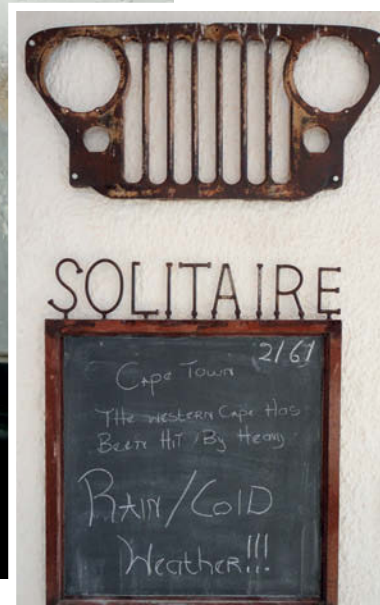 SOLITAIRE
2/67
Cape Town
The Western Cape Has
Been Hit By Heavy
Rain/Cold
Weather!!!